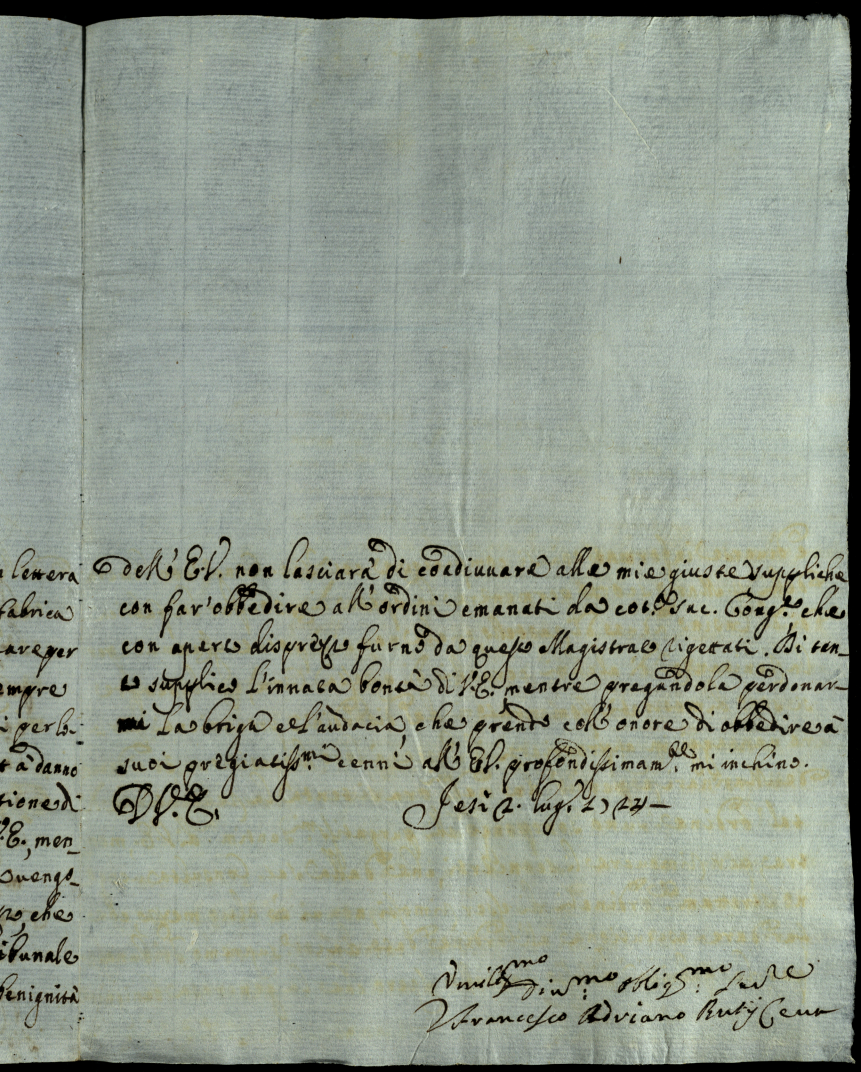 lettera
fabrica
care per
empre
i per lo
tt à danno
tione di
V.E., men_
vengo_
che
ibunale
benignità
dell' E.V. non lasciarà di coadiuuare alle mie giuste suppliche
con far' obbedire all' ordini emanati da cot.ª Sac. Cong.ne che
con aperto disprezzo furno da questo Magistrato rigettati. Di tan_
to supplico l'innata bontà di V.E., mentre pregandola perdonar_
mi la briga e l'audacia, che prendo coll' onore di obbedire à
suoi pregiatiss.mi cenni all' E.V. profondissimam.te mi inchino.
D V.E. Jesi 2. lug. 1724_
Vmiliss.mo Diu.mo oblig.mo Ser.re
Francesco Adriano